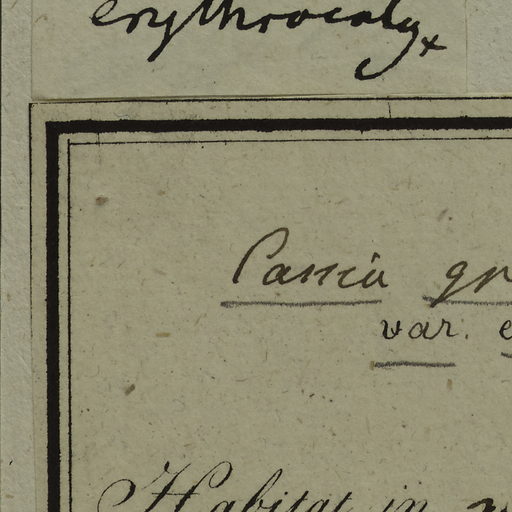 erythrocalyx
Cassia gr
var. e
Habitat in